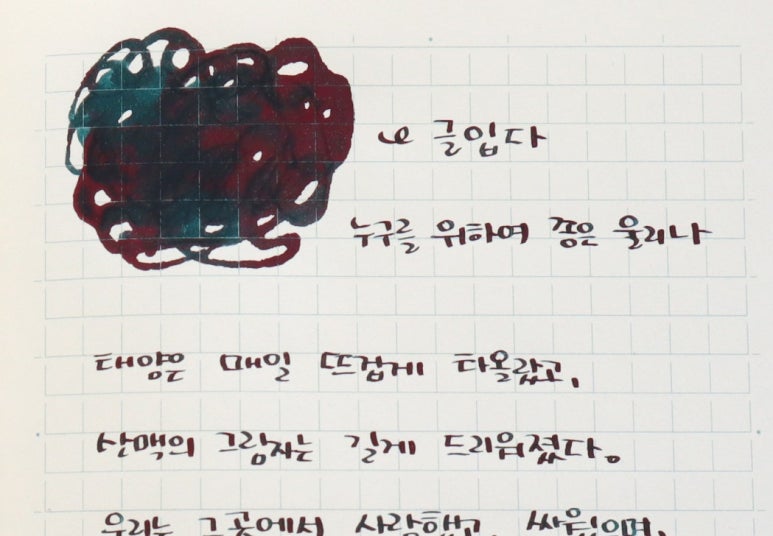 글입다
누구를 위하여 종은 울리나
태양은 매일 뜨겁게 타올랐고,
산맥의 그림자는 길게 드리워졌다。
우리는 그곳에서 사랑했고, 싸웠으며,